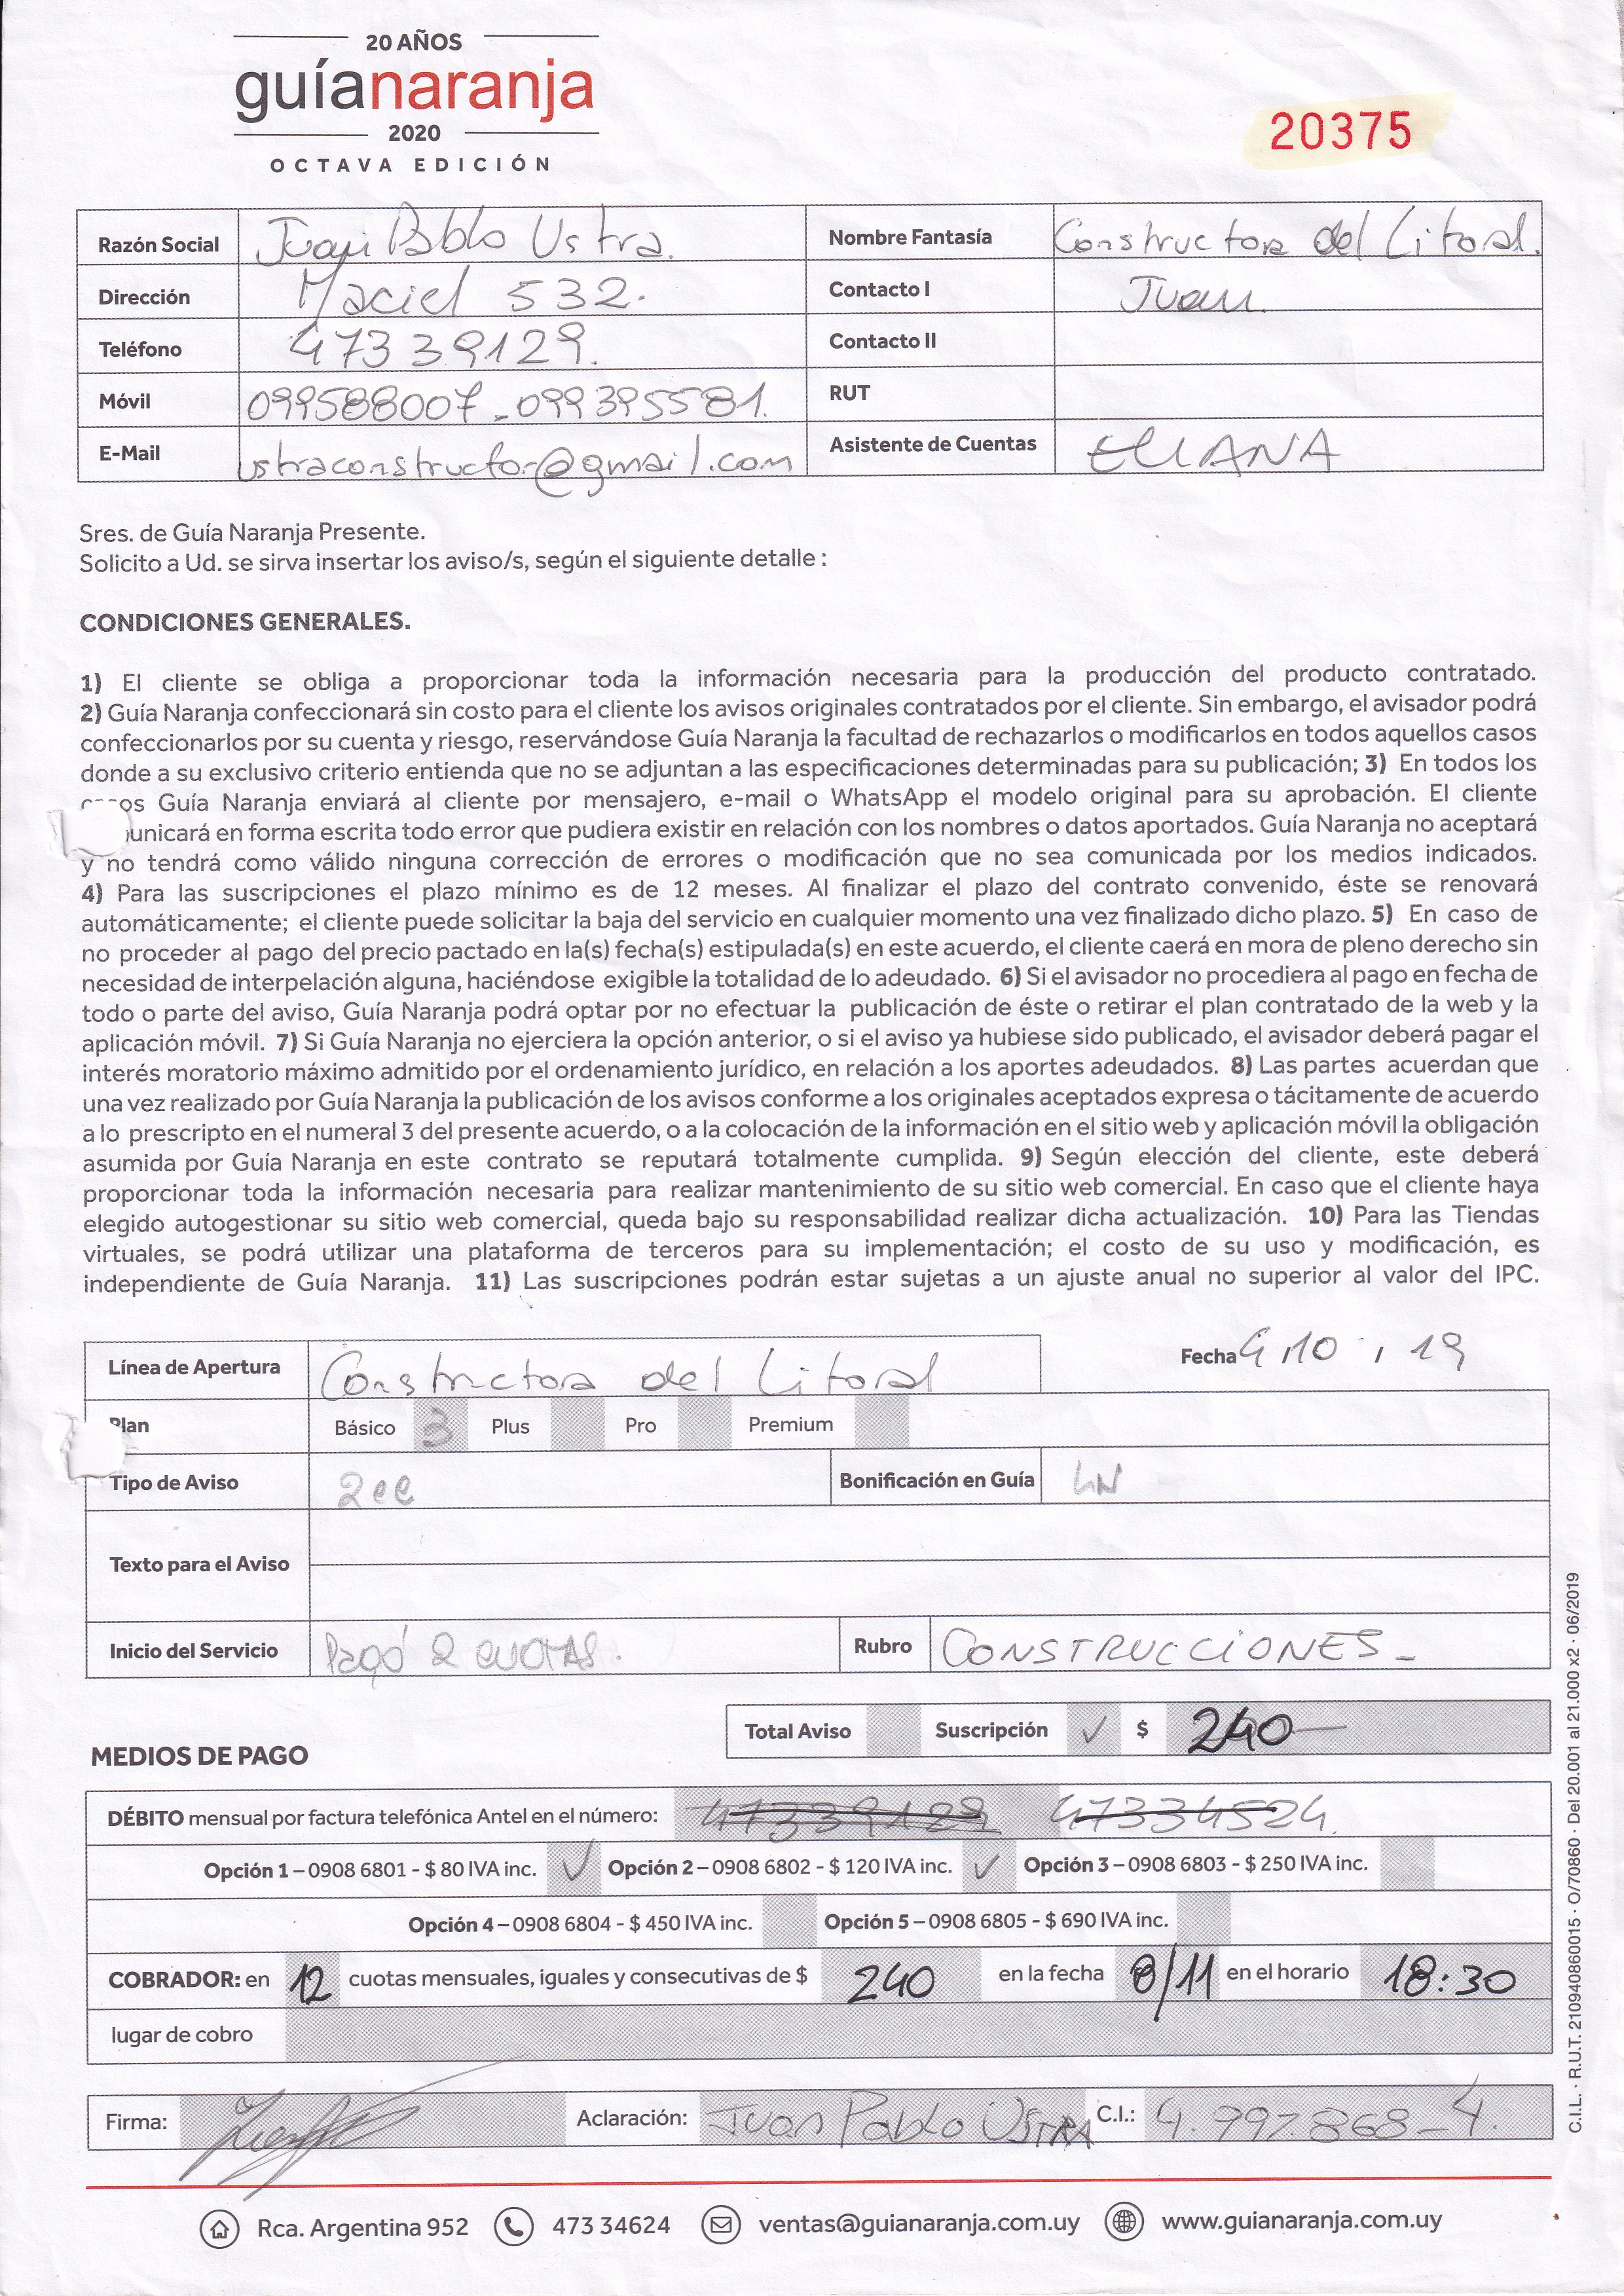 20 AÑOS
guíanaranja
2020
OCTAVA EDICIÓN
20375
Razón Social Juan Pablo Ustra. Nombre Fantasía Constructora del Litoral.
Dirección Maciel 532. Contacto I Juan
Teléfono 47339129. Contacto II
Móvil 099588007 - 099395581. RUT
E-Mail ustraconstructor@gmail.com Asistente de Cuentas ELIANA
Sres. de Guía Naranja Presente.
Solicito a Ud. se sirva insertar los aviso/s, según el siguiente detalle :
CONDICIONES GENERALES.
1) El cliente se obliga a proporcionar toda la información necesaria para la producción del producto contratado.
2) Guía Naranja confeccionará sin costo para el cliente los avisos originales contratados por el cliente. Sin embargo, el avisador podrá
confeccionarlos por su cuenta y riesgo, reservándose Guía Naranja la facultad de rechazarlos o modificarlos en todos aquellos casos
donde a su exclusivo criterio entienda que no se adjuntan a las especificaciones determinadas para su publicación; 3) En todos los
Guía Naranja enviará al cliente por mensajero, e-mail o WhatsApp el modelo original para su aprobación. El cliente
unicará en forma escrita todo error que pudiera existir en relación con los nombres o datos aportados. Guía Naranja no aceptará
y no tendrá como válido ninguna corrección de errores o modificación que no sea comunicada por los medios indicados.
4) Para las suscripciones el plazo mínimo es de 12 meses. Al finalizar el plazo del contrato convenido, éste se renovará
automáticamente; el cliente puede solicitar la baja del servicio en cualquier momento una vez finalizado dicho plazo. 5) En caso de
no proceder al pago del precio pactado en la(s) fecha(s) estipulada(s) en este acuerdo, el cliente caerá en mora de pleno derecho sin
necesidad de interpelación alguna, haciéndose exigible la totalidad de lo adeudado. 6) Si el avisador no procediera al pago en fecha de
todo o parte del aviso, Guía Naranja podrá optar por no efectuar la publicación de éste o retirar el plan contratado de la web y la
aplicación móvil. 7) Si Guía Naranja no ejerciera la opción anterior, o si el aviso ya hubiese sido publicado, el avisador deberá pagar el
interés moratorio máximo admitido por el ordenamiento jurídico, en relación a los aportes adeudados. 8) Las partes acuerdan que
una vez realizado por Guía Naranja la publicación de los avisos conforme a los originales aceptados expresa o tácitamente de acuerdo
a lo prescripto en el numeral 3 del presente acuerdo, o a la colocación de la información en el sitio web y aplicación móvil la obligación
asumida por Guía Naranja en este contrato se reputará totalmente cumplida. 9) Según elección del cliente, este deberá
proporcionar toda la información necesaria para realizar mantenimiento de su sitio web comercial. En caso que el cliente haya
elegido autogestionar su sitio web comercial, queda bajo su responsabilidad realizar dicha actualización. 10) Para las Tiendas
virtuales, se podrá utilizar una plataforma de terceros para su implementación; el costo de su uso y modificación, es
independiente de Guía Naranja. 11) Las suscripciones podrán estar sujetas a un ajuste anual no superior al valor del IPC.
Línea de Apertura Constructora del Litoral Fecha 4 / 10 / 19
Plan Básico 3 Plus Pro Premium
Tipo de Aviso 2cc Bonificación en Guía LN
Texto para el Aviso
Inicio del Servicio Pagó 2 cuotas. Rubro CONSTRUCCIONES -
Total Aviso Suscripción ✓ $ 240
MEDIOS DE PAGO
DÉBITO mensual por factura telefónica Antel en el número: 47339129 47334524.
Opción 1 – 0908 6801 - $ 80 IVA inc. ✓ Opción 2 – 0908 6802 - $ 120 IVA inc. ✓ Opción 3 – 0908 6803 - $ 250 IVA inc.
Opción 4 – 0908 6804 - $ 450 IVA inc. Opción 5 – 0908 6805 - $ 690 IVA inc.
COBRADOR: en 12 cuotas mensuales, iguales y consecutivas de $ 240 en la fecha 8/11 en el horario 18:30
lugar de cobro
Firma: Aclaración: Juan Pablo USTRA C.I.: 4.997.868-4.
Rca. Argentina 952 473 34624 ventas@guianaranja.com.uy www.guianaranja.com.uy
C.I.L. · R.U.T. 210940860015 · O/70860 · Del 20.001 al 21.000 x2 · 06/2019